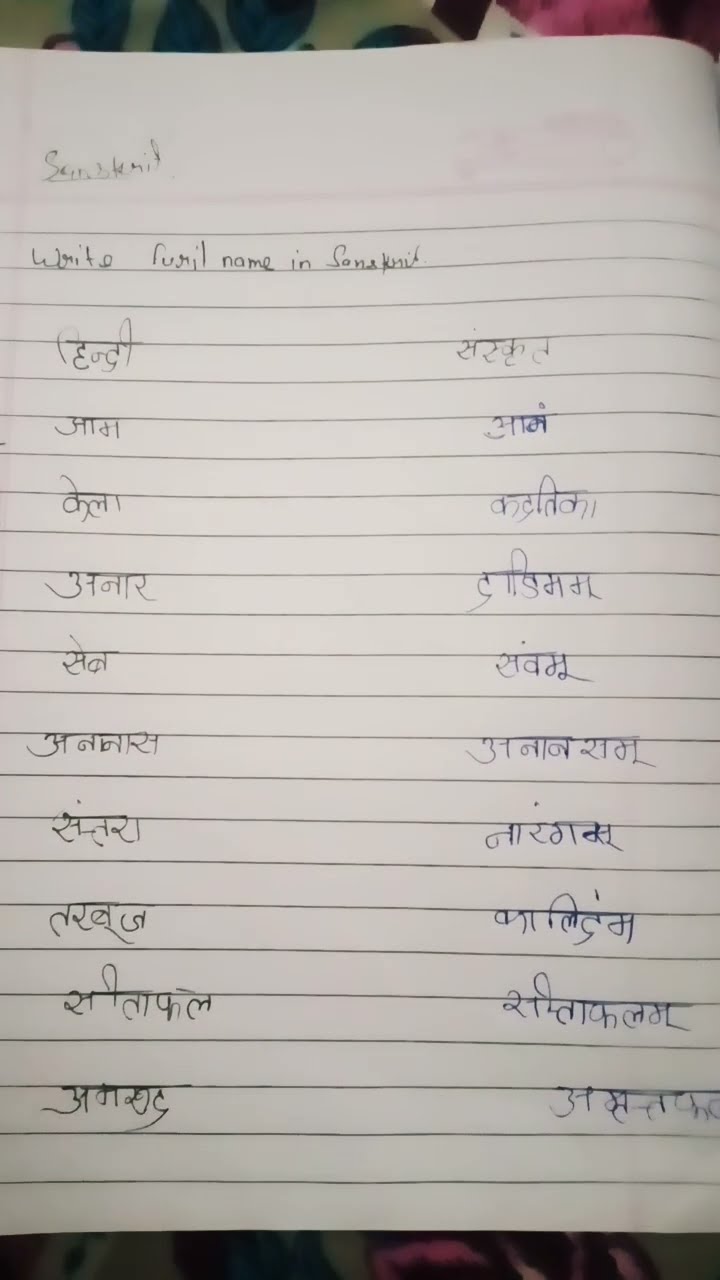 Sanskrit
Write Furil name in Sanskrit.
हिन्दी संस्कृत
आम आमं
केला कदतिका
अनार दाडिमम्
सेब संवम्
अनानास अनानसम्
संतरा नारंगम्
तरबूज कालिदंम
सीताफल सीताफलम्
अमरुद अमृतफल